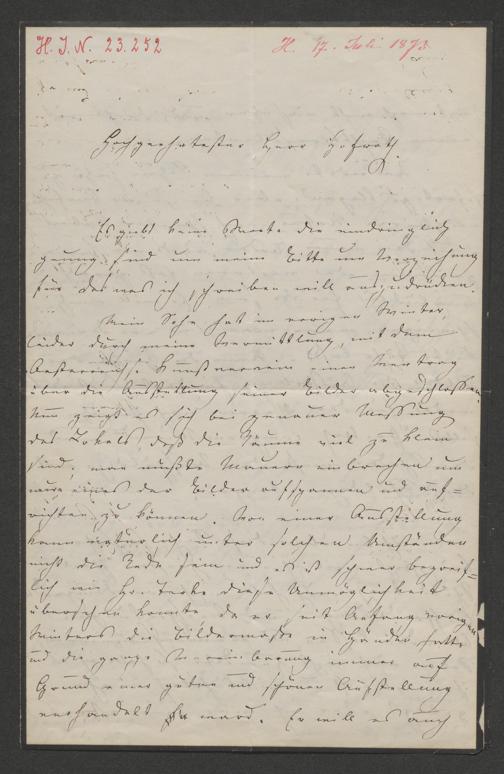 H. I. N. 23.252
H. 17. Juli 1873
Hochgeehrtester Herr Hofrath.
Es giebt keine Worte die eindringlich
genug sind um meine Bitte um Verzeihung
für das was ich schreiben will auszudrücken.
Mein Sohn hat im vorigen Winter,
leider durch meine Vermittlung, mit dem
Oesterreichische Kunstverein einen Vertrag
über die Ausstellung seiner Bilder abgeschlossen.
Nun zeigt es sich bei genauer Messung
des Lokals, daß die Räume viel zu klein
sind, man müßte Mauern einbrechen um
nur eines der Bilder aufspannen und auf-
richten zu können. Von einer Ausstellung
kann natürlich unter solchen Umständen
nicht die Rede sein und es ist schwer begreif-
lich wie Hr. Terke diese Unmöglichkeit
übersehen konnte da er seit Anfang vorigen
Winters die Bildermaße in Händen hatte
und die ganze Vereinbarung immer auf
Grund einer guten und schönen Aufstellung
verhandelt ward. Er will es auch